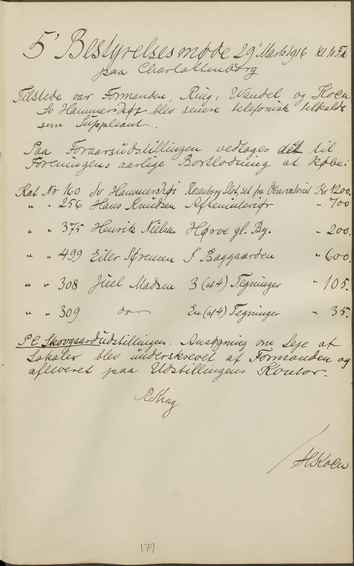 5' Bestyrelsesmøde 29' Marts 1916 Kl. 10
paa Charlottenborg
Tilstede var Formanden, Ring, Wandel, og Floen
Sv Hammershøi blev senere telefonisk tilkaldt
som Suppleant.
Paa Foraarsudstillingen vedtages det til
Foreningens aarlige Bortlodning at købe:
Kat. Nr 160 Sv Hammershøi set fra Observatoriet Kr 1200.
" " 256 Hans Knudsen - 700
" " 375 Henrik Nielsen Hgove gl. Bg. - 200.
" " 499 Eiler Sørensen I Baggaarden - 600.
" " 308 Juel Madsen 3 (is 4) Tegninger - 105.
" " 309 do En (is 4) Tegninger - 35.
P C Skovgaard Udstillingen. Ansøgning om Leje af
Lokaler blev underskrevet af Formanden og
afleveret paa Udstillingens Kontor.